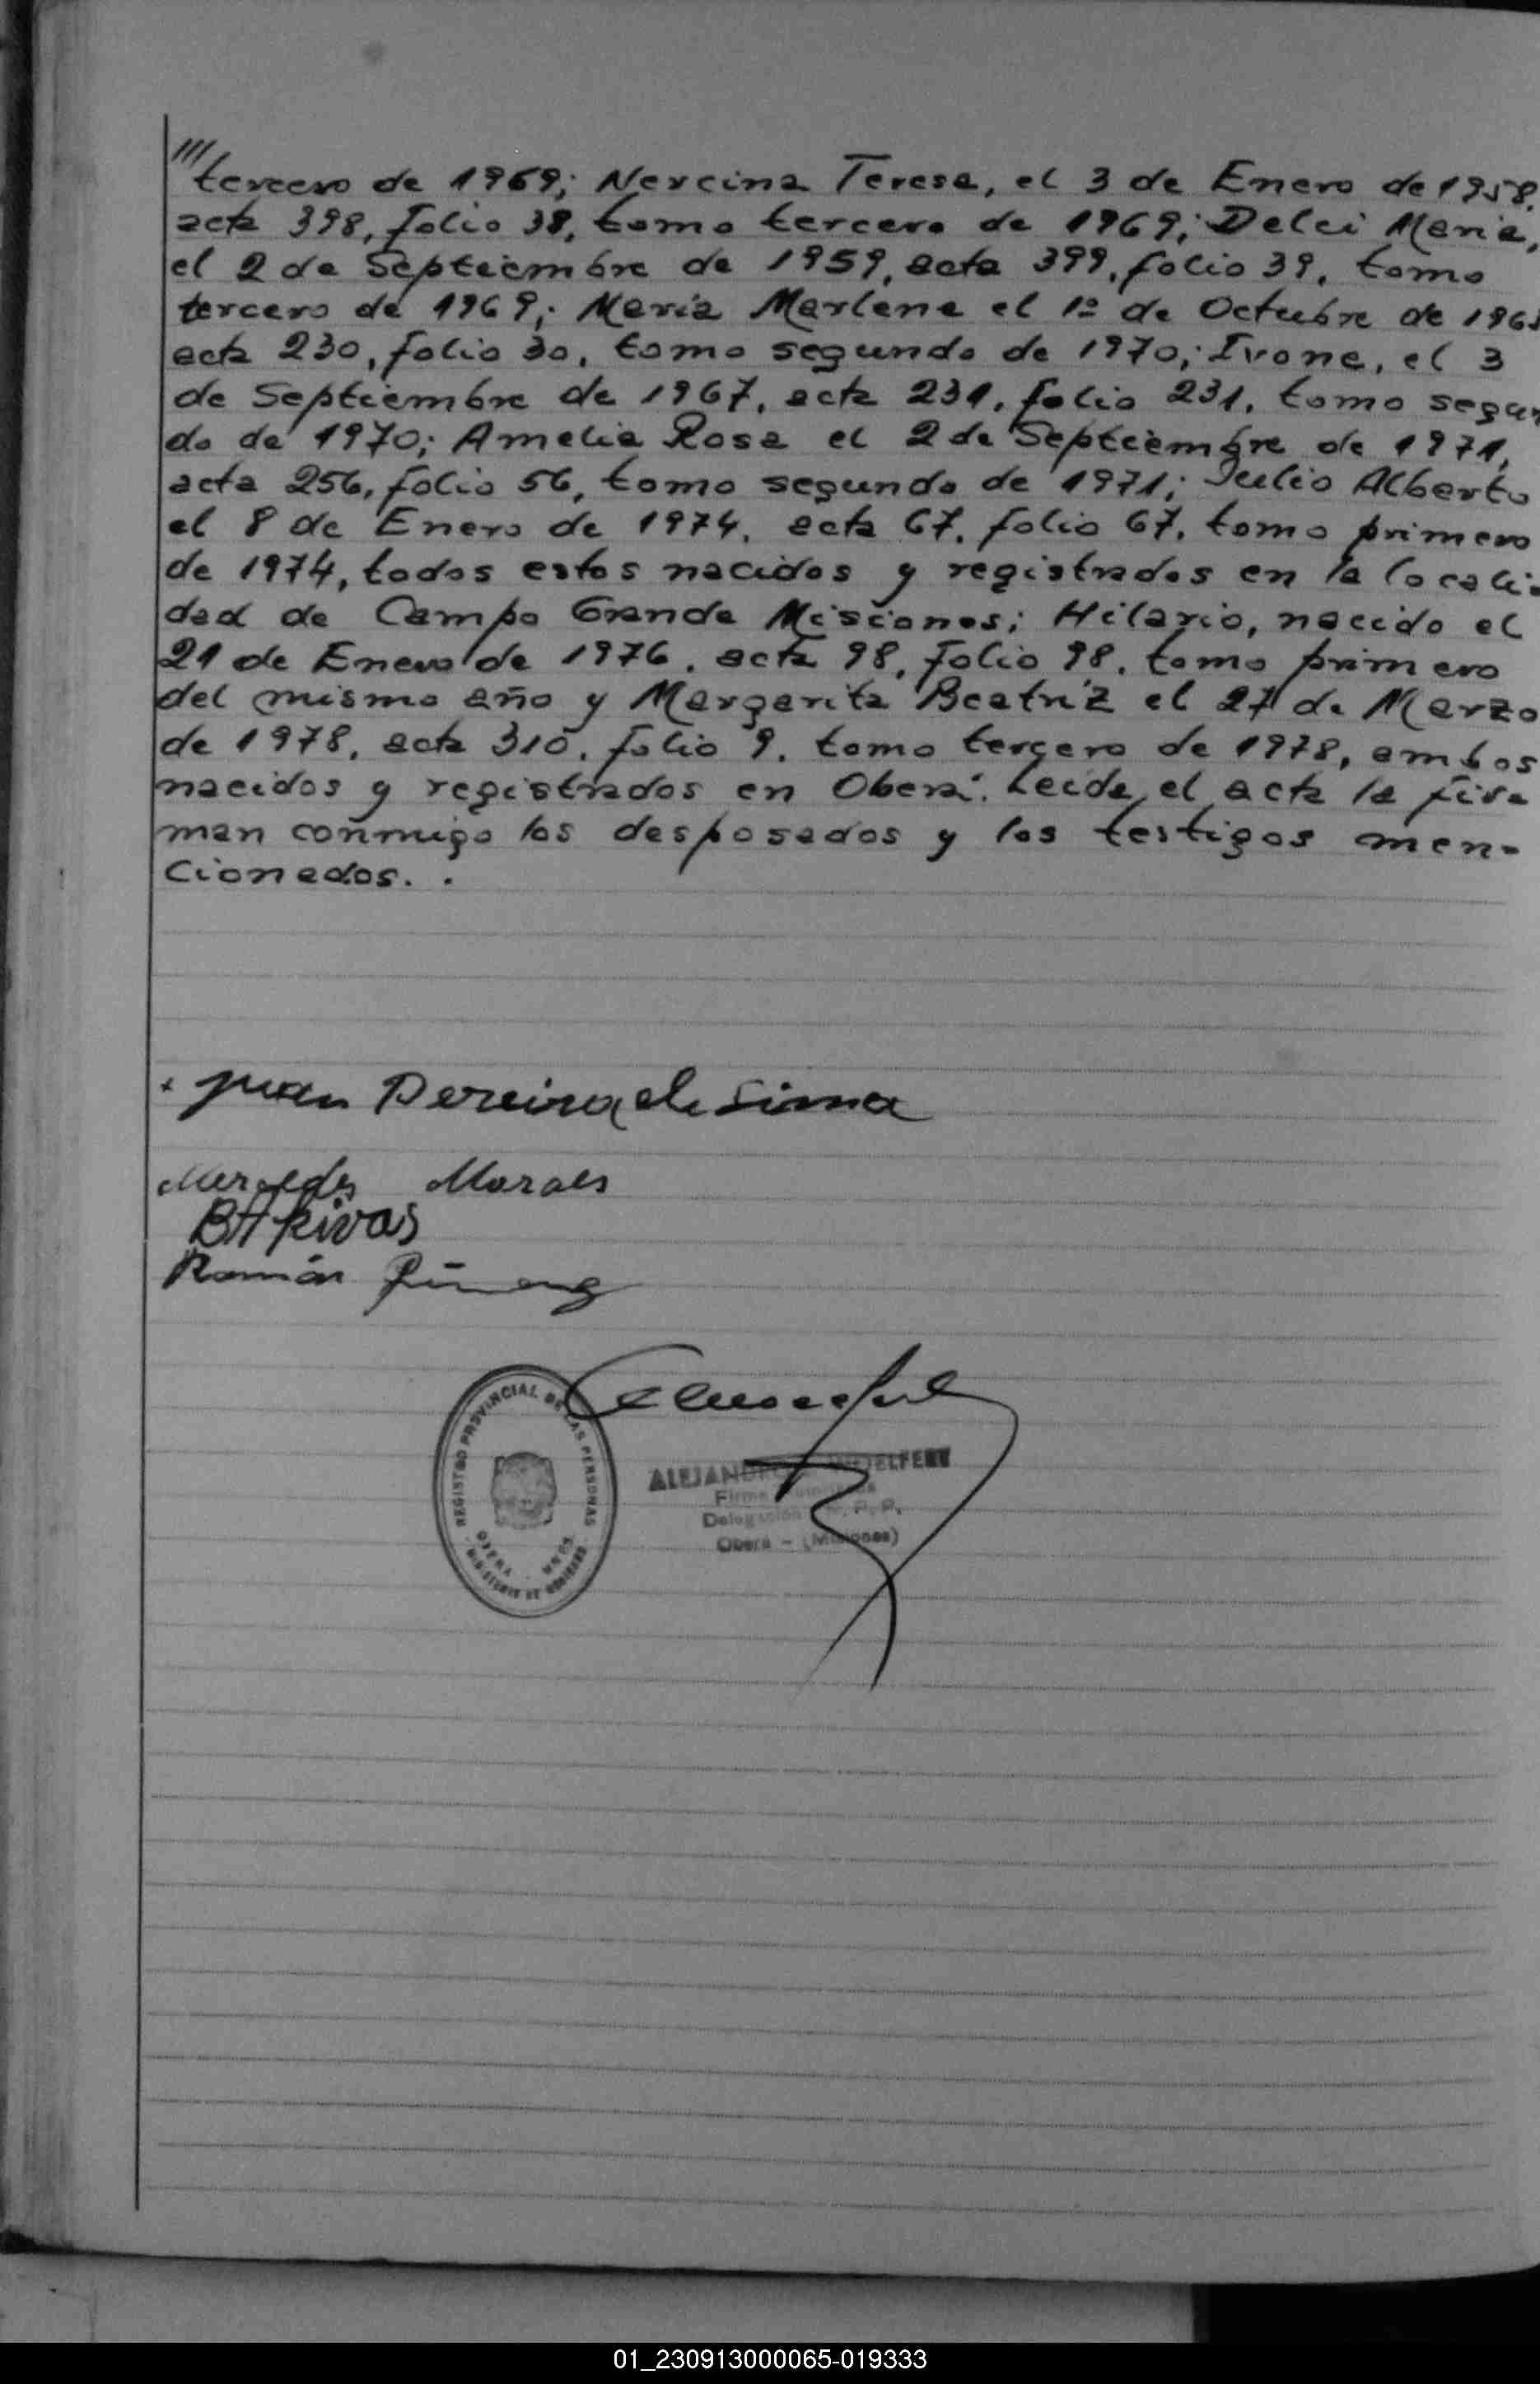 ///
tercero de 1969; Nercina Teresa, el 3 de Enero de 1958,
acta 398, folio 38, tomo tercero de 1969; Delci Maria,
el 2 de Septiembre de 1959, acta 399, folio 39, tomo
tercero de 1969; Maria Marlene el 1º de Octubre de
acta 230, folio 30, tomo segundo de 1970; Ivone, el 3
de Septiembre de 1967, acta 231, folio 231, tomo segun
do de 1970; Amelia Rosa el 2 de Septiembre de 1971,
acta 256, folio 56, tomo segundo de 1971; Julio Alberto
el 8 de Enero de 1974, acta 67, folio 67, tomo primero
de 1974, todos estos nacidos y registrados en la locali-
dad de Campo Grande Misiones; Hilario, nacido el
21 de Enero de 1976, acta 98, folio 98, tomo primero
del mismo año y Margarita Beatriz el 27 de Marzo
de 1978, acta 310, folio 9, tomo tercero de 1978, ambos
nacidos y registrados en Oberá. Leida el acta la fir-
man conmigo los desposados y los testigos men-
cionados. .
Juan Pereira de Lima
Mercedes Moraes
BH Rivas
Ramón
REGISTRO PROVINCIAL DE LAS PERSONAS
OBERA - MNES
MINISTERIO DE GOBIERNO
Firma
Delegación R. P. P.
Oberá - (Misiones)
01_230913000065-019333